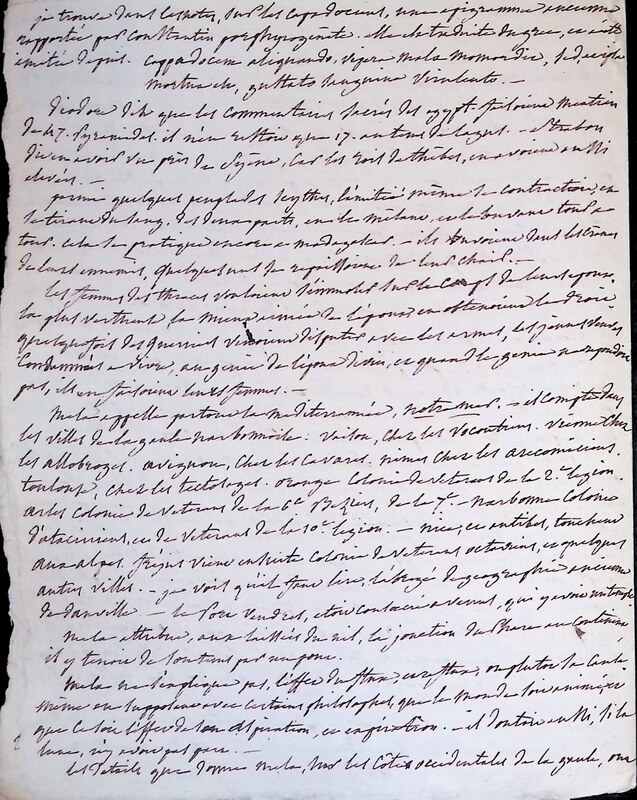 je trouve dans les notes, sur les cappadociens, une epigramme ancienne
rapportée par constantin porphyrogenete. elle est traduite du grec, et a été
imitée depuis. cappadocem aliquando, vipera mala momordit, sed ipsa
mortua est, gustato sanguine virulento. —
Diodore dit que les commentaires sacrés des egypt. faisoient mention
de 47. pyramides. il n'en restoit que 17. au tems de lagus. — strabon
dit en avoir vu près de syène, car les rois de thèbes, en avoient aussi
élevés. —
parmi quelques peuplades scythes, l'amitié même se contractoit, en
se tirant du sang, des deux parts, en le mêlant, et le buvant tour à
tour. cela se pratique encore a madagascar. — ils buvoient dans les crânes
de leurs ennemis, quelques uns se repaissoient de leur chair. —
les femmes des thraces vouloient s'immoler sur le corps de leurs époux.
la plus vertueuse la mieux aimée de l'époux en obtenoit le droit.
quelquefois des guerriers venoient disputer avec les armes, les jeunes veuves
condamnées a vivre, au genie de l'époux , et quand le genie ne repondoit
pas, ils en faisoient leurs femmes. —
Mela appelle partout la mediterranée, notre mer. — il compte dans
les villes de la gaule narbonnoise. vaison, chez les vocontiens. vienne chez
les allobroges. avignon, chez les cavares. nimes chez les arecomiciens.
toulouse, chez les tectosages. orange colonie de veterans de la 2e. legion.
arles colonie de veterans de la 6e. Beziers, de la 7e. — narbonne colonie
d'ataciniens, et de veterans de la 10e. legion. — nice, et antibes, touchent
aux alpes. fréjus vient ensuite colonie de veterans octaviens, et quelques
autres villes. — je vois qu'il faut lire, l'abrégé de geographie ancienne
de danville — le Port vendres, etoit consacré a venus, qui y avoit un temple
Mela attribue, aux laissées du nil, la jonction du Phare au continent
il y tenoit de son tems par un pont.
Mela ne s'explique pas, l'effet du flux, et reflux, ou plutot la cause
même en supposant avec certains philosophes, que le monde soit animé, et
que ce soit l'effet de son aspiration, et inspiration. — il doutoit aussi, si la
lune, n'y avoit pas part. —
les details que donne mela, sur les cotes occidentales de la gaule, ont